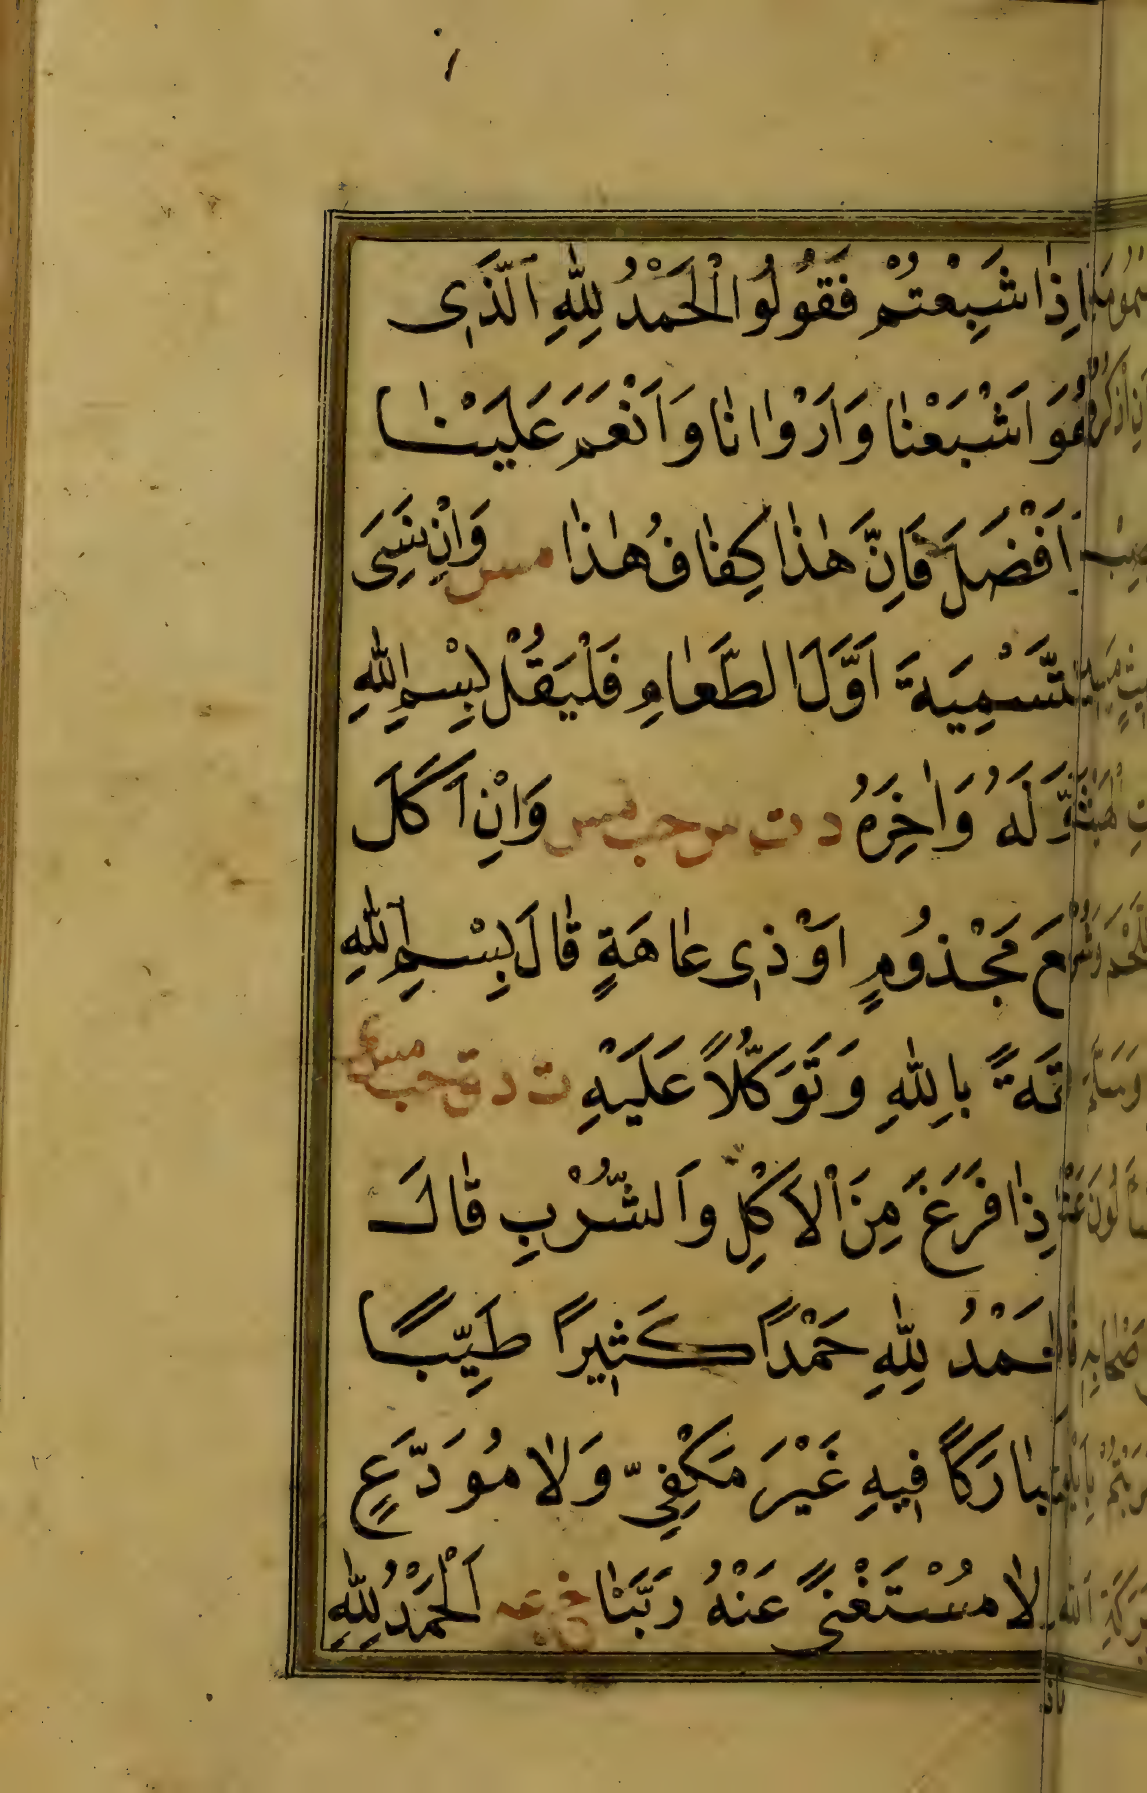 اِذٰا شَبِعْتُمْ فَقُولُوا الْحَمْدُ لِلّٰهِ اَلَّذَی
هُوَ اَشْبَعْنٰا وَاَرْوٰانٰا وَاَنْعَمَ عَلَيْنٰا
اَفْضَلَ فَاِنَّ هٰذٰا كِفٰافُ هٰذٰا مس وَاِنْ نَسِىَ
لتَّسْمِيَةَ اَوَّلَ الطَّعٰامِ فَلْيَقُلْ بِسْمِ اللّٰهِ
وَّلَهُ وَاٰخِرَهُ د ت س حب مس وَاِنْ اَكَلَ
عَ مَجْذُومٍ اَوْ ذٖی عٰاهَةٍ قٰالَ بِسْمِ اللّٰهِ
قَةً بِاللّٰهِ وَتَوَكُّلاً عَلَيْهِ ت د ق حب مس ى
ذٰا فَرَغَ مِنَ الْاَكْلِ وَالشُّرْبِ قٰالَ
لحَمْدُ لِلّٰهِ حَمْدًا كَثٖيرًا طَيِّبًا
مُبٰارَكًا فٖيهِ غَيْرَ مَكْفِىٍّ وَلٰا مُوَدَّعٍ
لٰا مُسْتَغْنًى عَنْهُ رَبَّنٰا خ عه اَلْحَمْدُ لِلّٰهِ